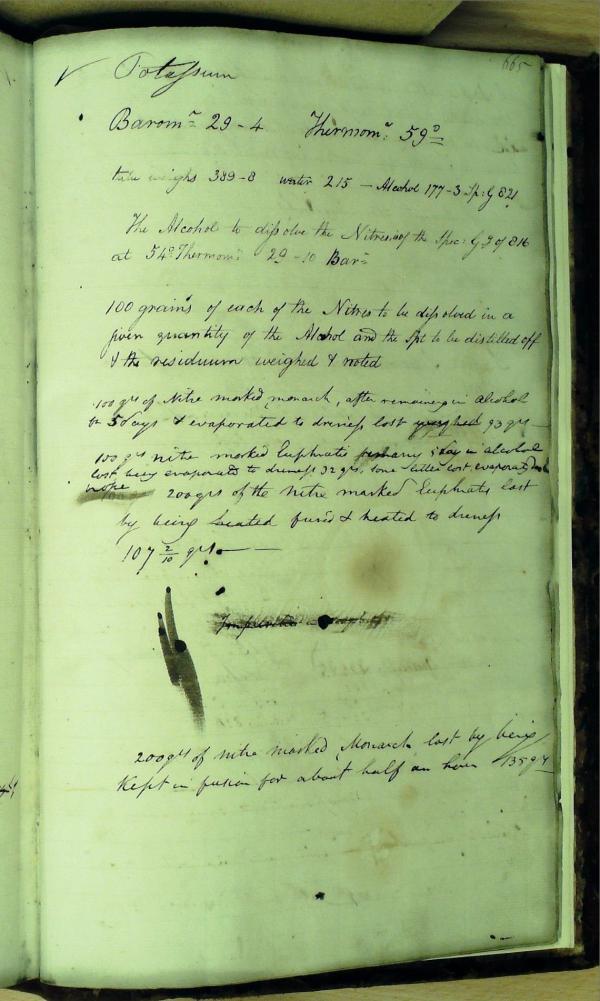 665
Potassium
Barom.r 29-4 Thermom.r 59°
tube weighs 389-8 water 215 - Alcohol 177-3 Sp: G 821
The Alcohol to dissolve the Nitres is of the Spec: Gy of 816
at 54° Thermom.r 29-10 Bar.r
100 grains of each of the Nitres to be dissolved in a
given quantity of the Alcohol and the Spt to be distilled off
& the residuum weighed & noted
100 grs of Nitre marked monarch, after remaining in alcohol
5 days & evaporated to dryness lost weighed 93 grs
100 grs nitre marked Euphrates 5 day in alcohol
lost being evaporated to dryness 32 grs. lost evaporated
200 grs of the nitre marked Euphrates lost
by being heated fused & heated to dryness
107 2/10 grs.
Impurities
200 grs of nitre marked Monarch lost by being
Kept in fusion for about half an hour 135 grs